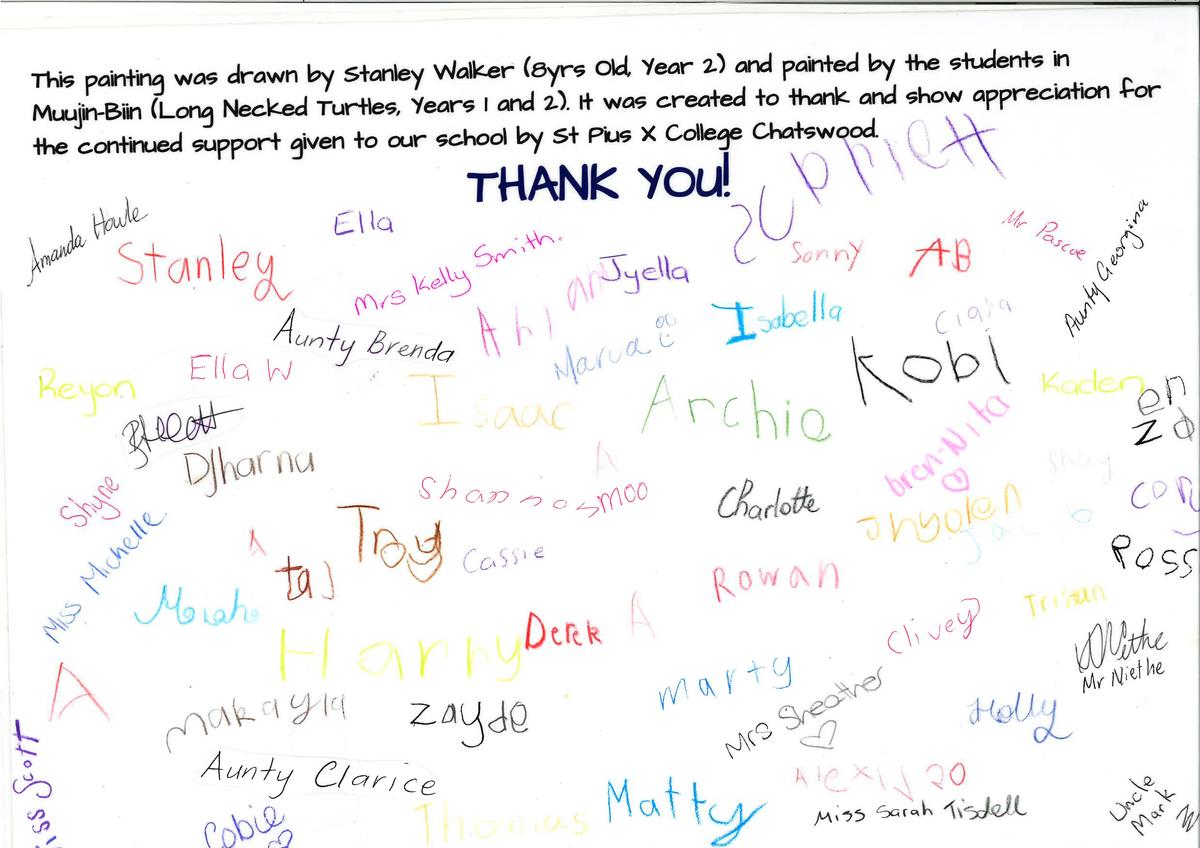 This painting was drawn by Stanley Walker (8yrs Old, Year 2) and painted by the students in
Muujin-Biin (Long Necked Turtles, Years 1 and 2). It was created to thank and show appreciation for
the continued support given to our school by St Pius X College Chatswood.
THANK YOU!
Amanda
Ella
Stanley
Mrs Kelly Smith.
Jyella
Sonny
AB
Mr Pascoe
Aunty Georgina
Aunty Brenda
Marva
Isabella
Ciara
Reyon
Ella W
Isaac
Archie
Kobi
Kaden
Djharna
A
bren-Nita
Shay
Shyne
Shannosmoo
Charlotte
Jhyolen
Jacob
Miss Michelle
A
Troy
Cassie
taj
Rowan
Ross
Miah
Harry
Derek
A
Clivey
Tristan
A
Mr Niethe
makayla
Zayde
marty
Mrs Sheather
Holly
Aunty Clarice
Alexij20
Cobie
Thomas
Matty
Miss Sarah Tisdell
Uncle
Mark